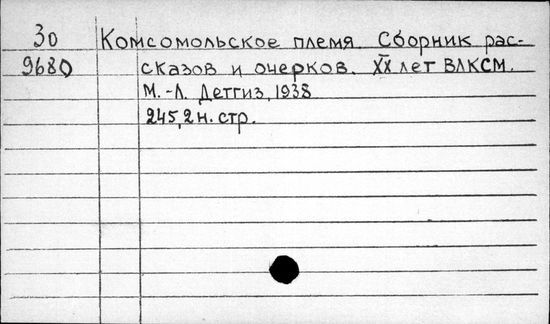 30 Комсомольское племя. Сборник рас-
9680 сказов и очерков. XX лет ВЛКСМ.
М.-Л. Детгиз, 1938
245, 2 н. стр.